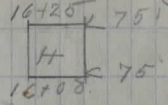 16+25 75'
H
16+00 75'